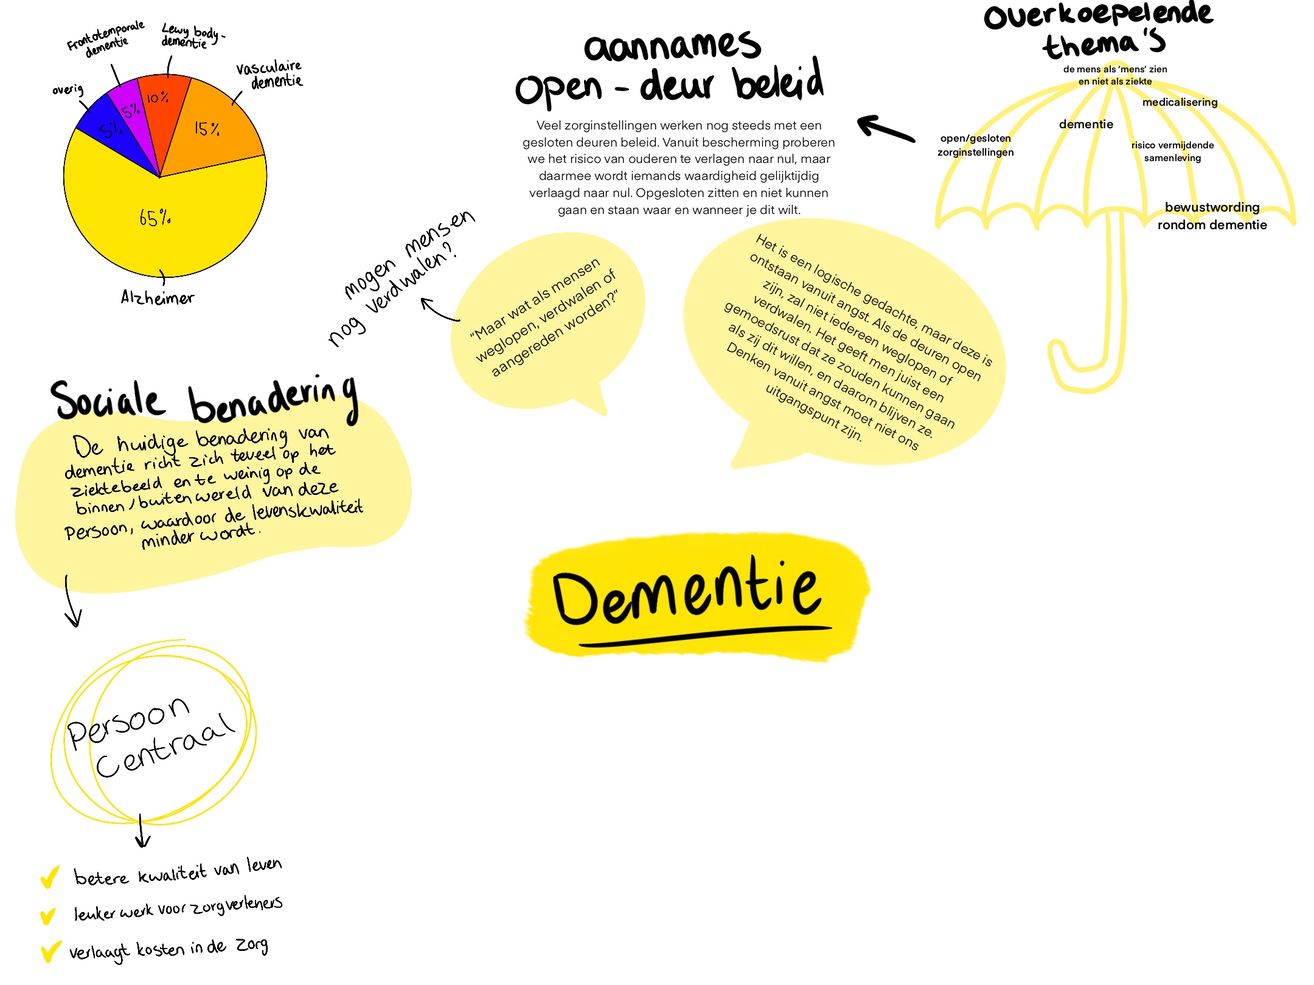 Frontotemporale
dementie
Lewy body-
dementie
Vasculaire
dementie
overig
5%
5%
10%
15%
65%
Alzheimer
aannames
open - deur beleid
Veel zorginstellingen werken nog steeds met een
gesloten deuren beleid. Vanuit bescherming proberen
we het risico van ouderen te verlagen naar nul, maar
daarmee wordt iemands waardigheid gelijktijdig
verlaagd naar nul. Opgesloten zitten en niet kunnen
gaan en staan waar en wanneer je dit wilt.
overkoepelende
thema's
de mens als 'mens' zien
en niet als ziekte
medicalisering
dementie
open/gesloten
zorginstellingen
risico vermijdende
samenleving
bewustwording
rondom dementie
mogen mensen
nog verdwalen?
"Maar wat als mensen
weglopen, verdwalen of
aangereden worden?"
Het is een logische gedachte, maar deze is
ontstaan vanuit angst. Als de deuren open
zijn, zal niet iedereen weglopen of
verdwalen. Het geeft men juist een
gemoedsrust dat ze zouden kunnen gaan
als zij dit willen, en daarom blijven ze.
Denken vanuit angst moet niet ons
uitgangspunt zijn.
Sociale benadering
De huidige benadering van
dementie richt zich teveel op het
ziektebeeld en te weinig op de
binnen/buitenwereld van deze
Persoon, waardoor de levenskwaliteit
minder wordt.
Dementie
Persoon
Centraal
betere kwaliteit van leven
leuker werk voor zorgverleners
verlaagt kosten in de zorg